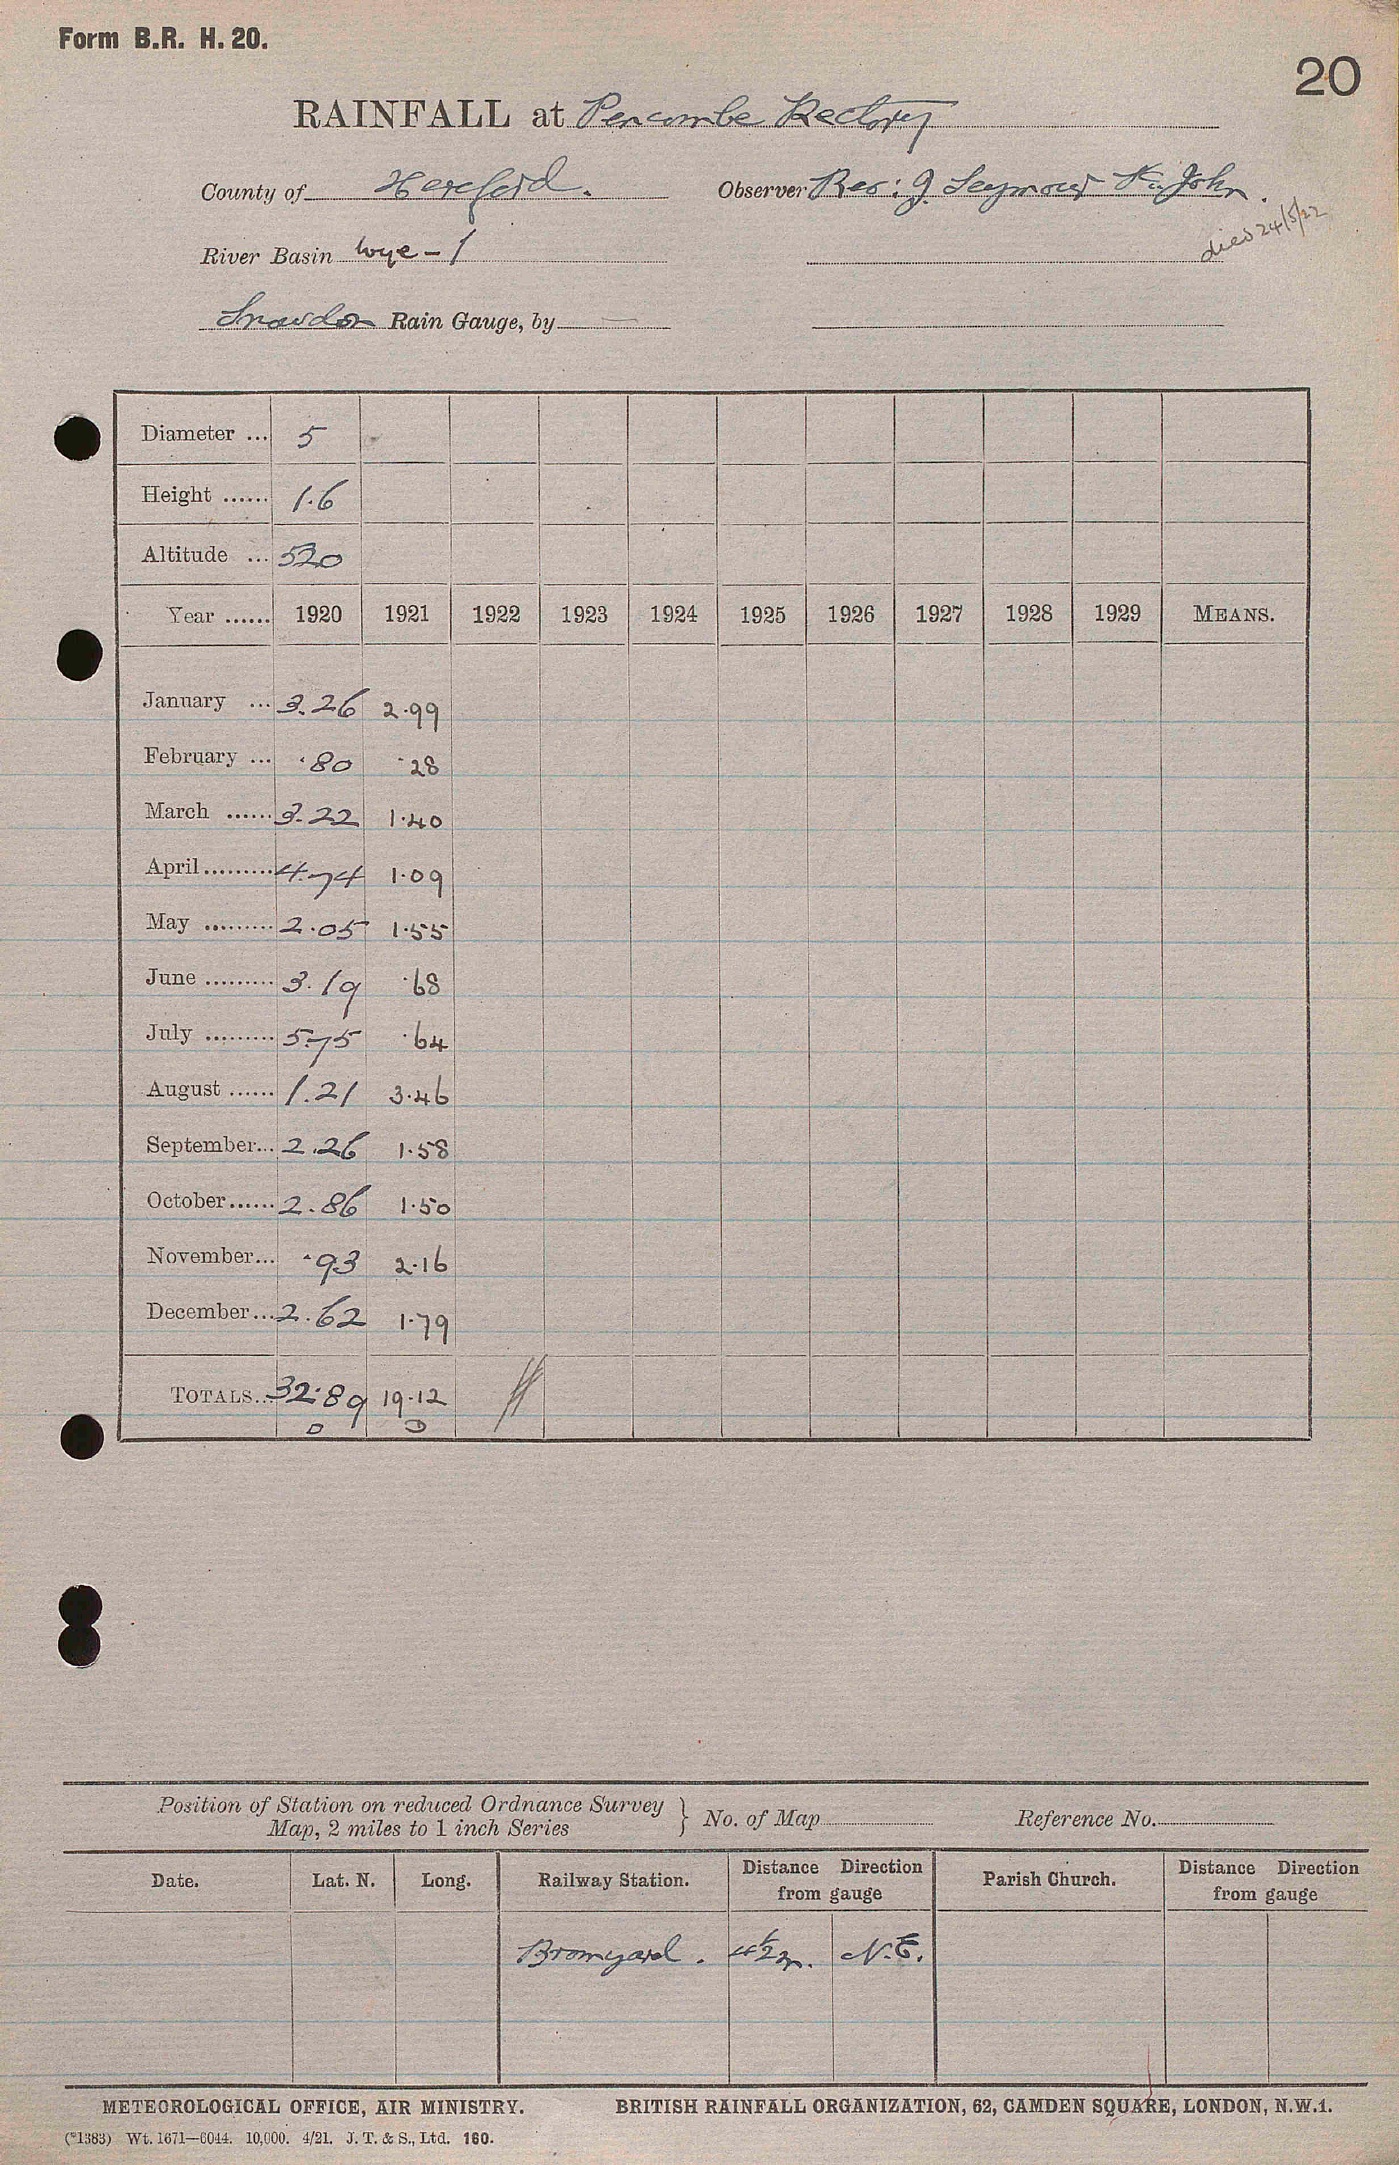 Form B.R. H. 20.
20
RAINFALL at Pencombe Rectory
County of Hereford. Observer Rev: J. Seymour St. John.
died 24/5/22
River Basin Wye - 1
Snowdon Rain Gauge, by —
Diameter ... 5
Height ...... 1.6
Altitude ... 520
Year ...... 1920 1921 1922 1923 1924 1925 1926 1927 1928 1929 MEANS.
January ... 3.26 2.99
February ... .80 .28
March ...... 3.22 1.40
April ......... 4.74 1.09
May ......... 2.05 1.55
June ......... 3.19 .68
July ......... 5.75 .64
August ...... 1.21 3.46
September... 2.26 1.58
October ...... 2.86 1.50
November... .93 2.16
December... 2.62 1.79
TOTALS... 32.89 19.12
D D
Position of Station on reduced Ordnance Survey
Map, 2 miles to 1 inch Series } No. of Map Reference No.
Date. Lat. N. Long. Railway Station. Distance Direction from gauge Parish Church. Distance Direction from gauge
Bromyard. 4½ m. N.E.
METEOROLOGICAL OFFICE, AIR MINISTRY. BRITISH RAINFALL ORGANIZATION, 62, CAMDEN SQUARE, LONDON, N.W.1.
(*1383) Wt. 1671—6044. 10,000. 4/21. J. T. & S., Ltd. 160.